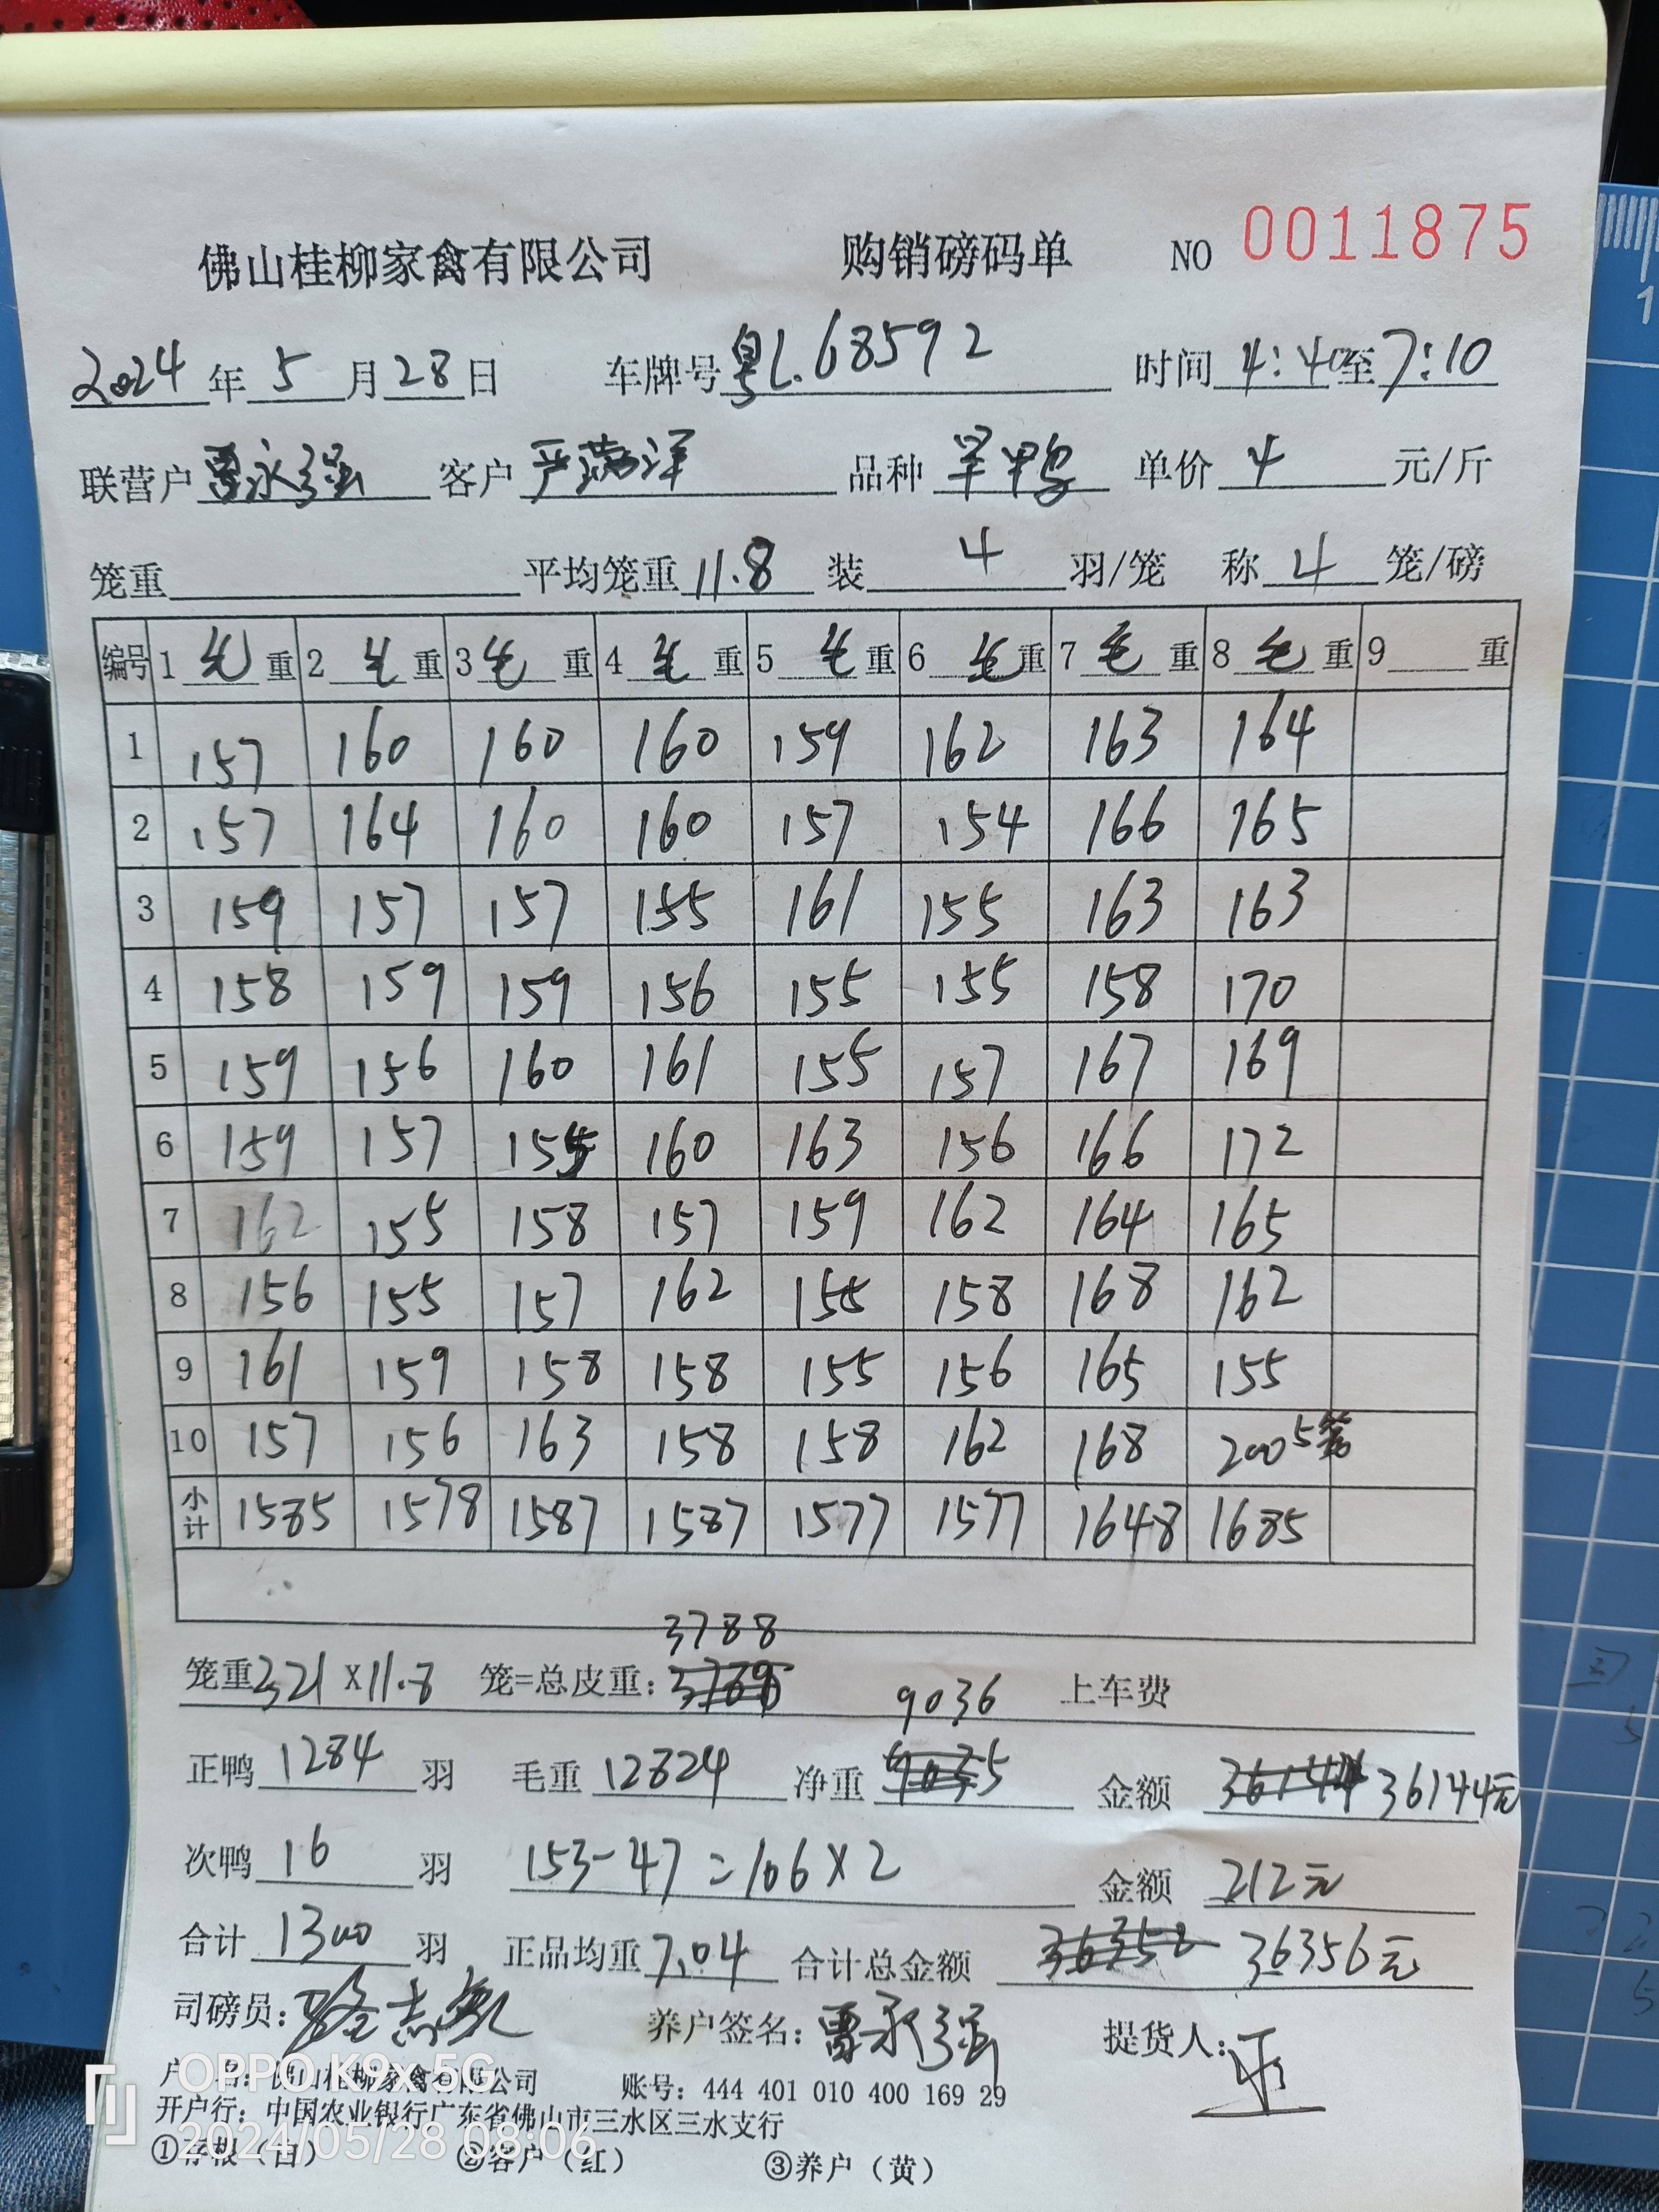 佛山桂柳家禽有限公司 购销磅码单 NO 0011875
2024年5月28日 车牌号粤L.68592 时间4:40至7:10
联营户曹永强 客户严 洋 品种旱鸭 单价4元/斤
笼重 平均笼重11.8 装4羽/笼 称4笼/磅
编号 1毛重 2毛重 3毛重 4毛重 5毛重 6毛重 7毛重 8毛重 9 重
1 157 160 160 160 159 162 163 164
2 157 164 160 160 157 154 166 165
3 159 157 157 155 161 155 163 163
4 158 159 159 156 155 155 158 170
5 159 156 160 161 155 157 167 169
6 159 157 155 160 163 156 166 172
7 162 155 158 157 159 162 164 165
8 156 155 157 162 155 158 168 162
9 161 159 158 158 155 156 165 155
10 157 156 163 158 158 162 168 200 5笼
小计 1585 1578 1587 1587 1577 1577 1648 1685
3788
笼重321X11.8 笼=总皮重: 上车费
9036
正鸭1284羽 毛重12824 净重9035 金额 36144元
次鸭16羽 153-47=106X2 金额212元
合计1300羽 正品均重7.04 合计总金额 36352 36356元
司磅员: 养户签名:曹永强 提货人:
户 名:佛山桂柳家禽有限公司 账号: 444 401 010 400 169 29
开户行:中国农业银行广东省佛山市三水区三水支行
①存根（白） ②客户（红） ③养户（黄）
OPPO K9x 5G
2024/05/28 08:06